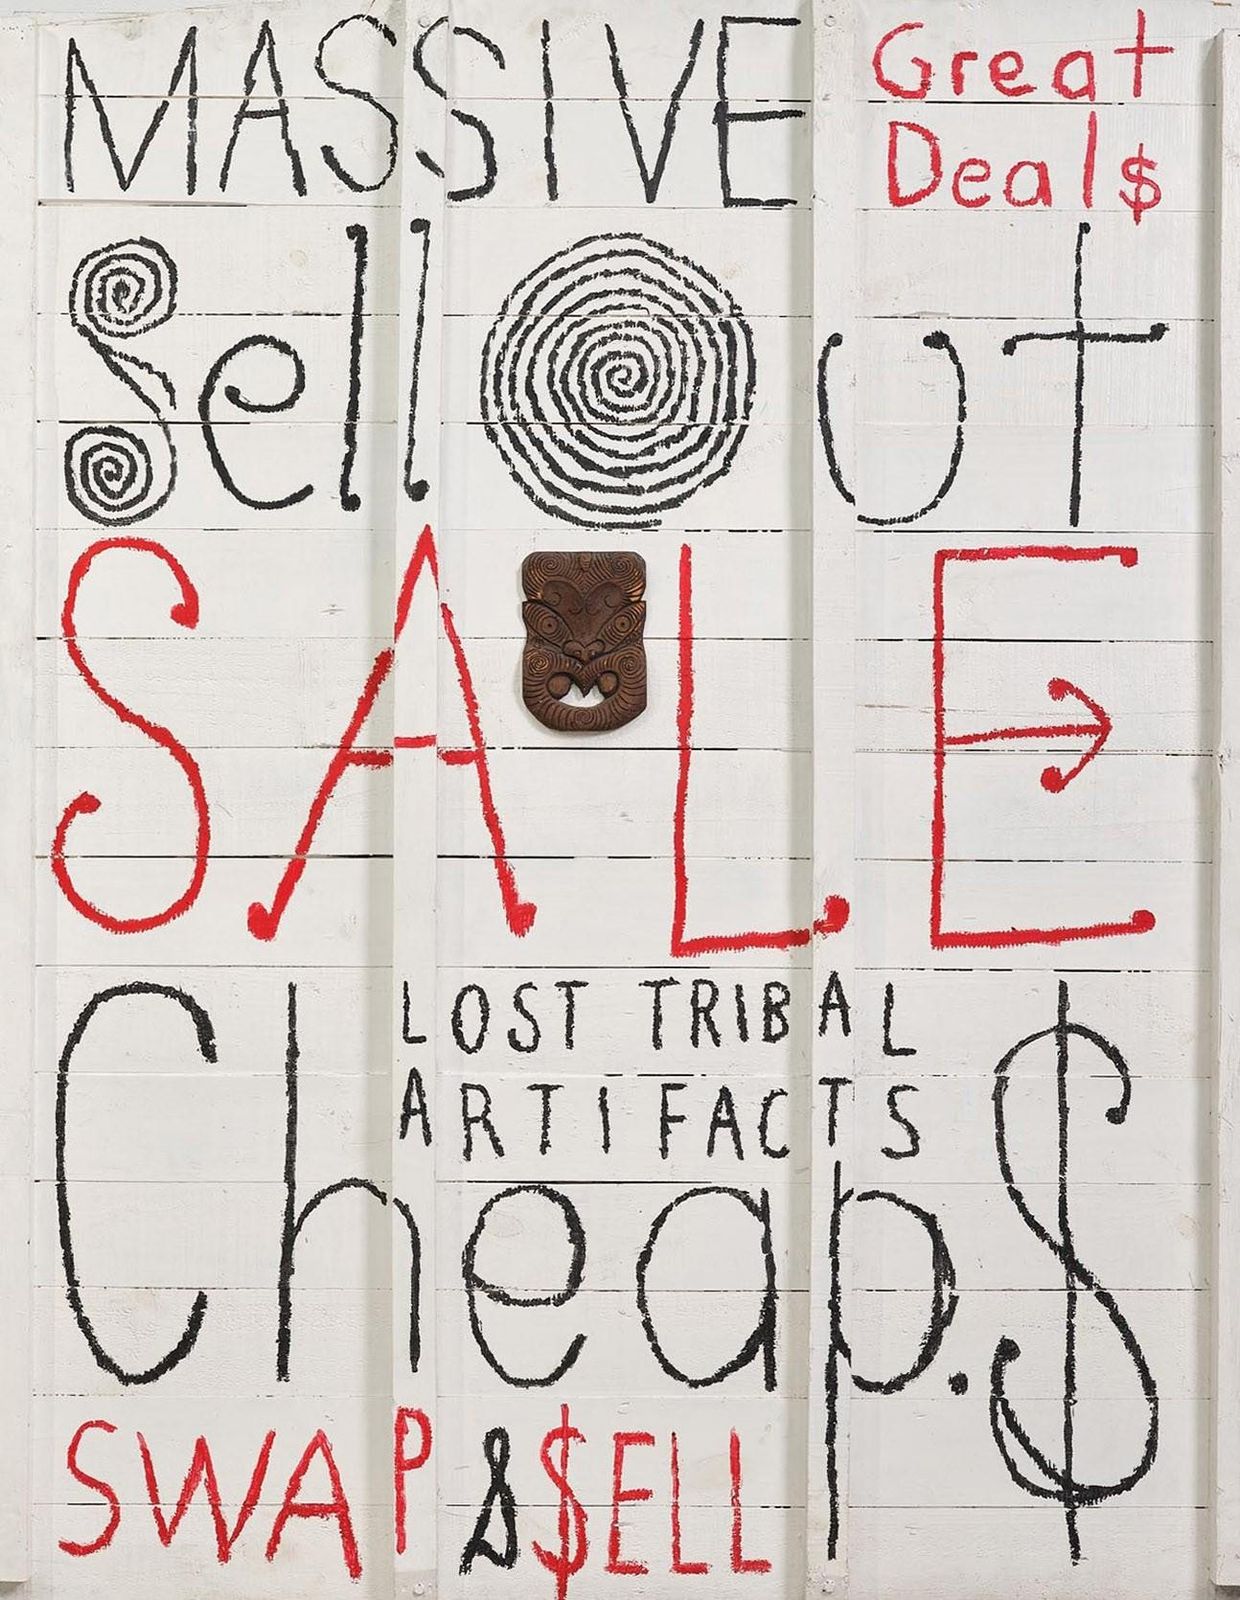 MASSIVE
Great
Deal$
Sell Out
SALE
LOST TRIBAL
ARTIFACTS
Cheap.$
SWAP & $ELL